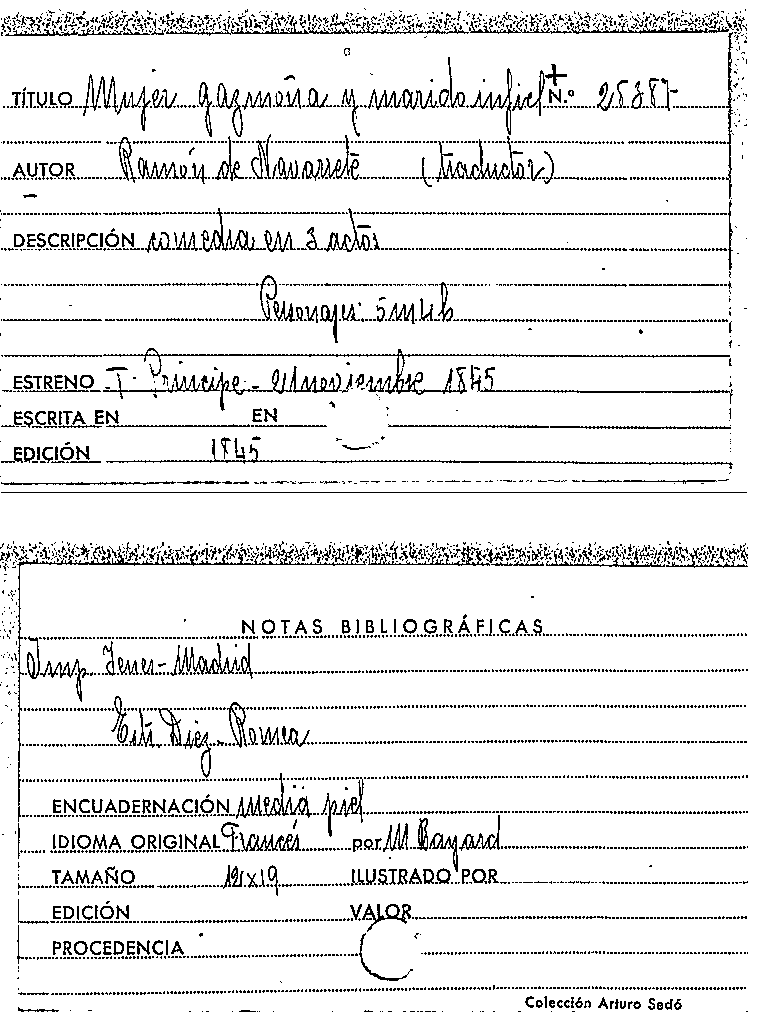 TÍTULO Mujer gazmoña y marido infiel N.º 25387
AUTOR Ramón de Navarrete (traductor)
DESCRIPCIÓN comedia en 3 actos
Personajes: 5 m 4 h
ESTRENO T. Príncipe - 21 noviembre 1845
ESCRITA EN EN
EDICIÓN 1845
NOTAS BIBLIOGRÁFICAS
Imp Yenes - Madrid
Est: Diez - Romea
ENCUADERNACIÓN media piel
IDIOMA ORIGINAL Francés por M Bayard
TAMAÑO 12x19 ILUSTRADO POR
EDICIÓN VALOR
PROCEDENCIA
Colección Arturo Sedó